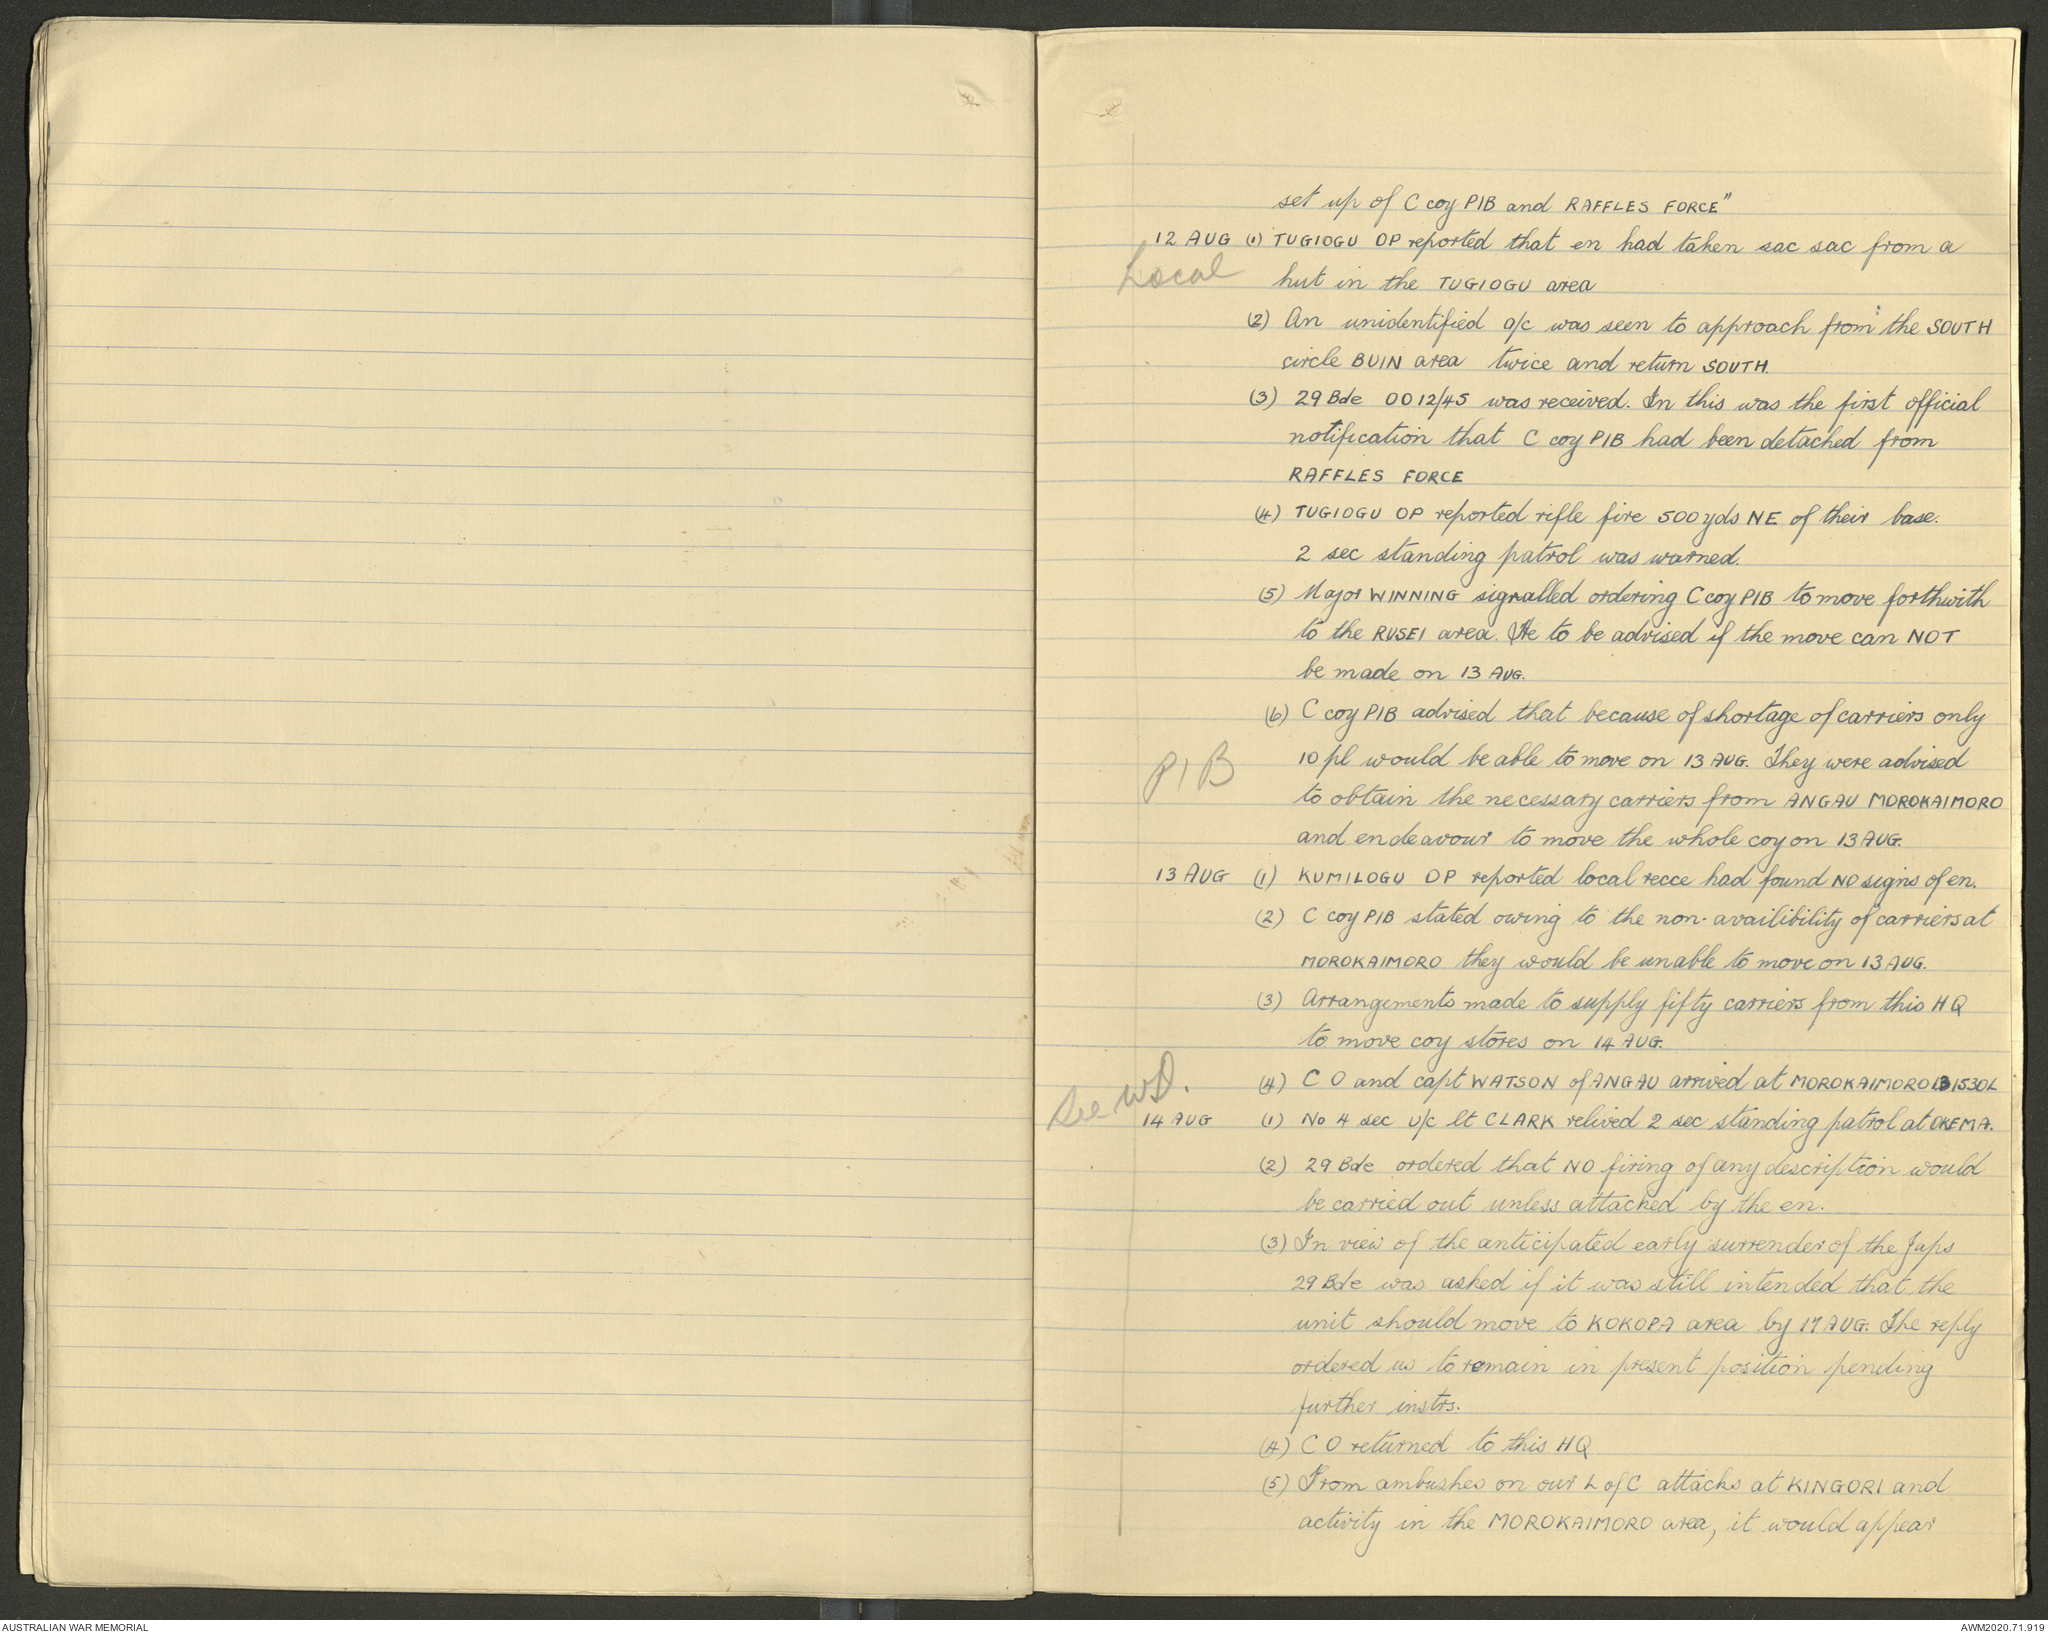 set up of C coy PIB and RAFFLES FORCE"
12 AUG (1) TUGIOGU OP reported that en had taken sac sac from a
Local
hut in the TUGIOGU area
(2) An unidentified a/c was seen to approach from the SOUTH
circle BUIN area twice and return SOUTH.
(3) 29 Bde OO 12/45 was received. In this was the first official
notification that C coy PIB had been detached from
RAFFLES FORCE
(4) TUGIOGU OP reported rifle fire 500 yds NE of their base.
2 sec standing patrol was warned.
(5) Major WINNING signalled ordering C coy PIB to move forthwith
to the RUSEI area. He to be advised if the move can NOT
be made on 13 AUG.
(6) C coy PIB advised that because of shortage of carriers only
PIB
10 pl would be able to move on 13 AUG. They were advised
to obtain the necessary carriers from ANGAU MOROKAIMORO
and endeavour to move the whole coy on 13 AUG.
13 AUG (1) KUMILOGU OP reported local recce had found NO signs of en.
(2) C coy PIB stated owing to the non-availibility of carriers at
MOROKAIMORO they would be unable to move on 13 AUG.
(3) Arrangements made to supply fifty carriers from this HQ
to move coy stores on 14 AUG.
See WD.
(4) C O and capt WATSON of ANGAU arrived at MOROKAIMORO 131530L
14 AUG (1) No 4 sec u/c lt CLARK relived 2 sec standing patrol at OKEMA.
(2) 29 Bde ordered that NO firing of any description would
be carried out unless attacked by the en.
(3) In view of the anticipated early surrender of the Japs
29 Bde was asked if it was still intended that the
unit should move to KOKOPA area by 17 AUG. The reply
ordered us to remain in present position pending
further instrs.
(4) C O returned to this HQ
(5) From ambushes on our L of C attacks at KINGORI and
activity in the MOROKAIMORO area, it would appear
AUSTRALIAN WAR MEMORIAL
AWM2020.71.919